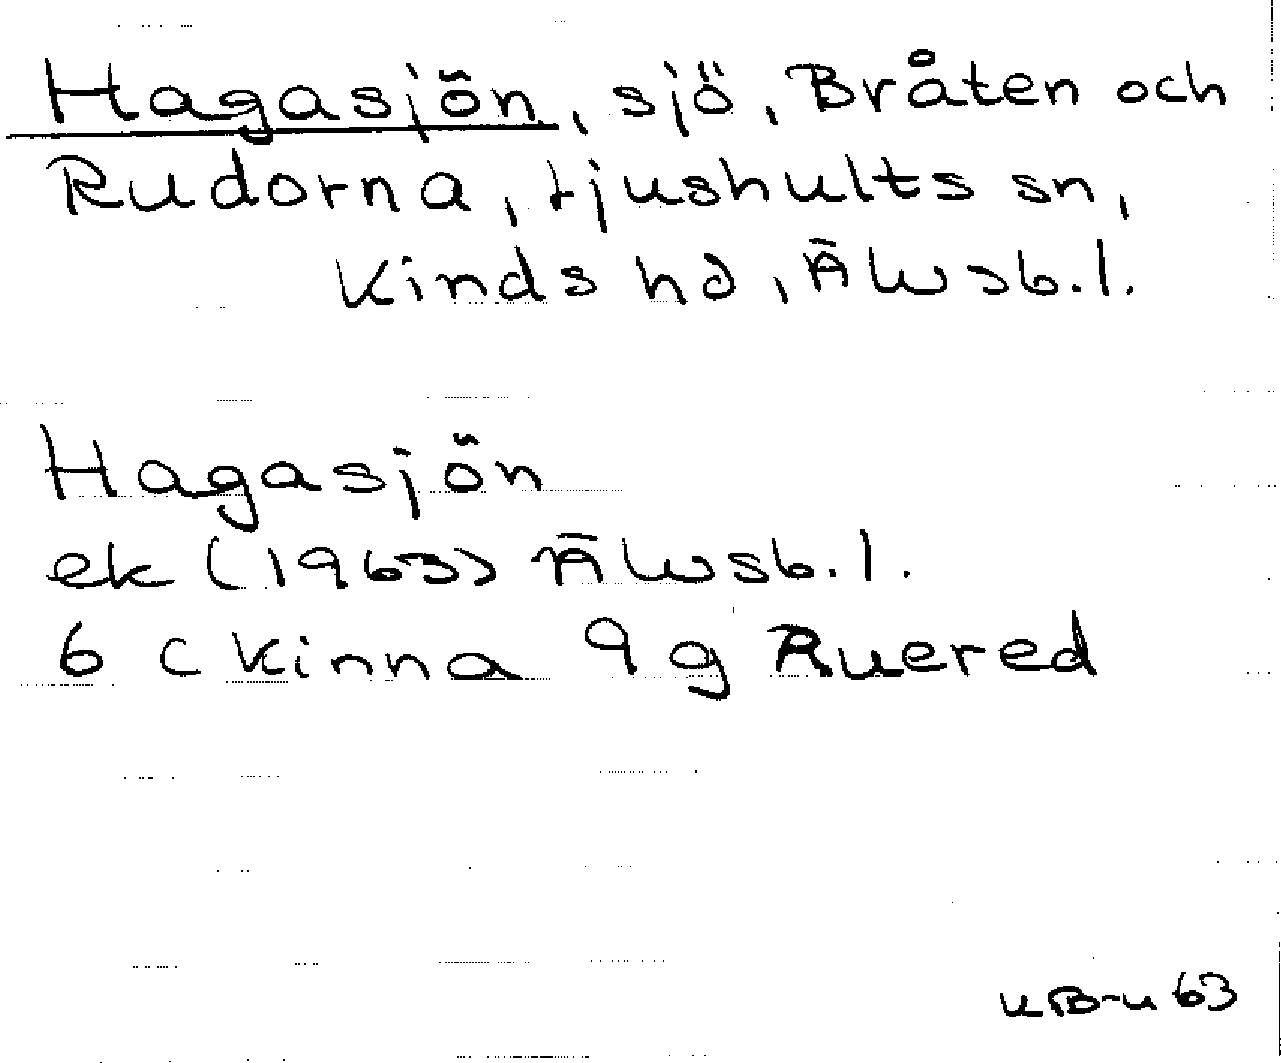 Hagasjön, sjö, Bråten och
Rudorna, Ljushults sn,
Kinds hd, Älvsb.l.
Hagasjön
ek (1963) Älvsb.l.
6 c Kinna 9 g Ruered
63